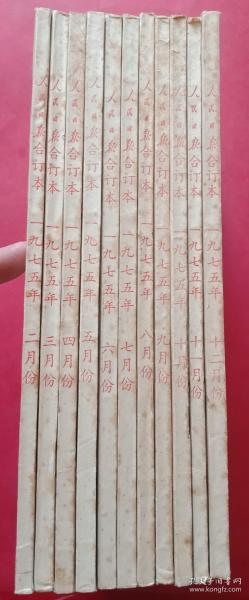 人民日报合订本 一九七五年 二月份
人民日报合订本 一九七五年 三月份
人民日报合订本 一九七五年 四月份
人民日报合订本 一九七五年 五月份
人民日报合订本 一九七五年 六月份
人民日报合订本 一九七五年 七月份
人民日报合订本 一九七五年 八月份
人民日报合订本 一九七五年 九月份
人民日报合订本 一九七五年 十月份
人民日报合订本 一九七五年 十一月份
人民日报合订本 一九七五年 十二月份
孔夫子旧书网
www.kongfz.com